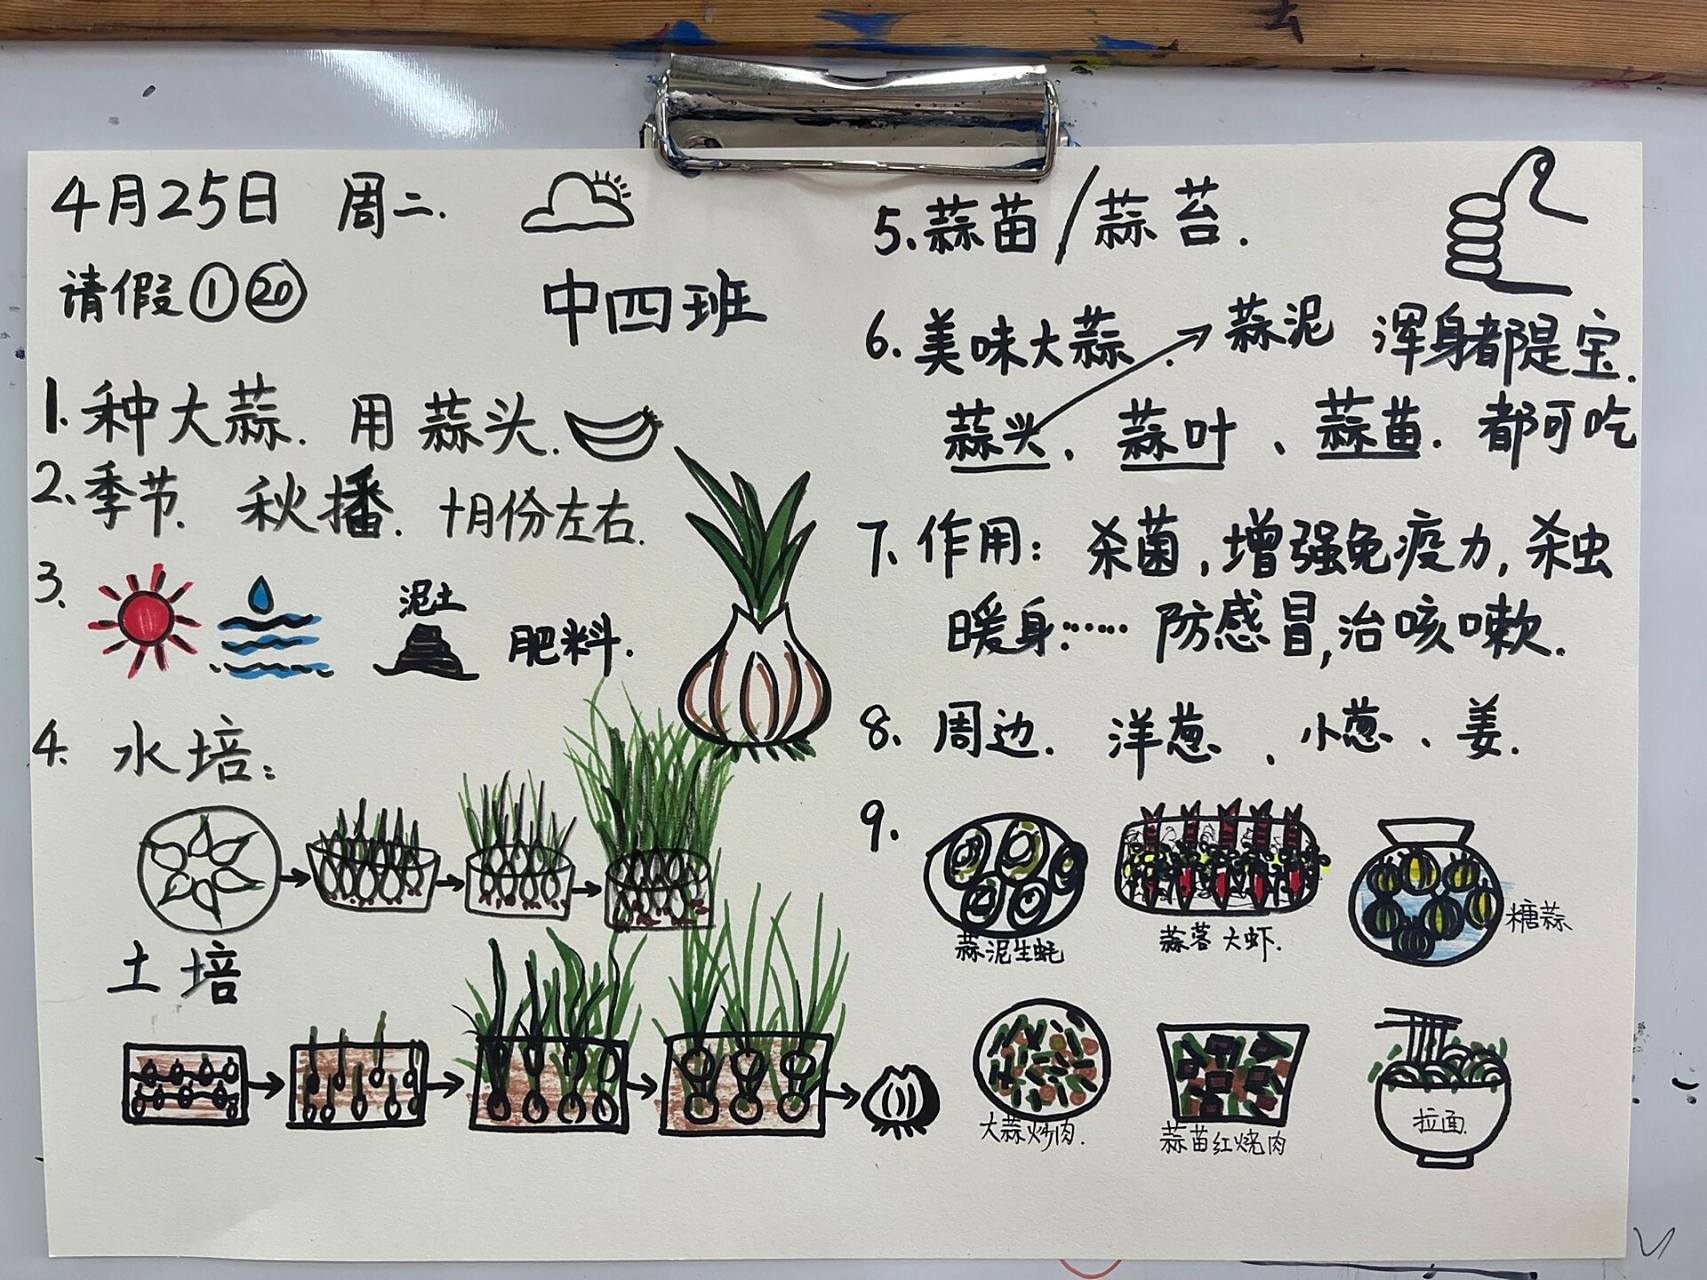 4月25日 周二.
请假①⑳
中四班
1.种大蒜.用蒜头.
2.季节.秋播.十月份左右.
3.
泥土
肥料.
4.水培:
土培
5.蒜苗/蒜苔.
6.美味大蒜.→蒜泥 浑身都是宝.
蒜头、蒜叶、蒜苗.都可吃
7.作用:杀菌,增强免疫力,杀虫
暖身……防感冒,治咳嗽.
8.周边.洋葱、小葱、姜.
9.
蒜泥生蚝
蒜蓉大虾.
糖蒜
大蒜炒肉.
蒜苗红烧肉
拉面.